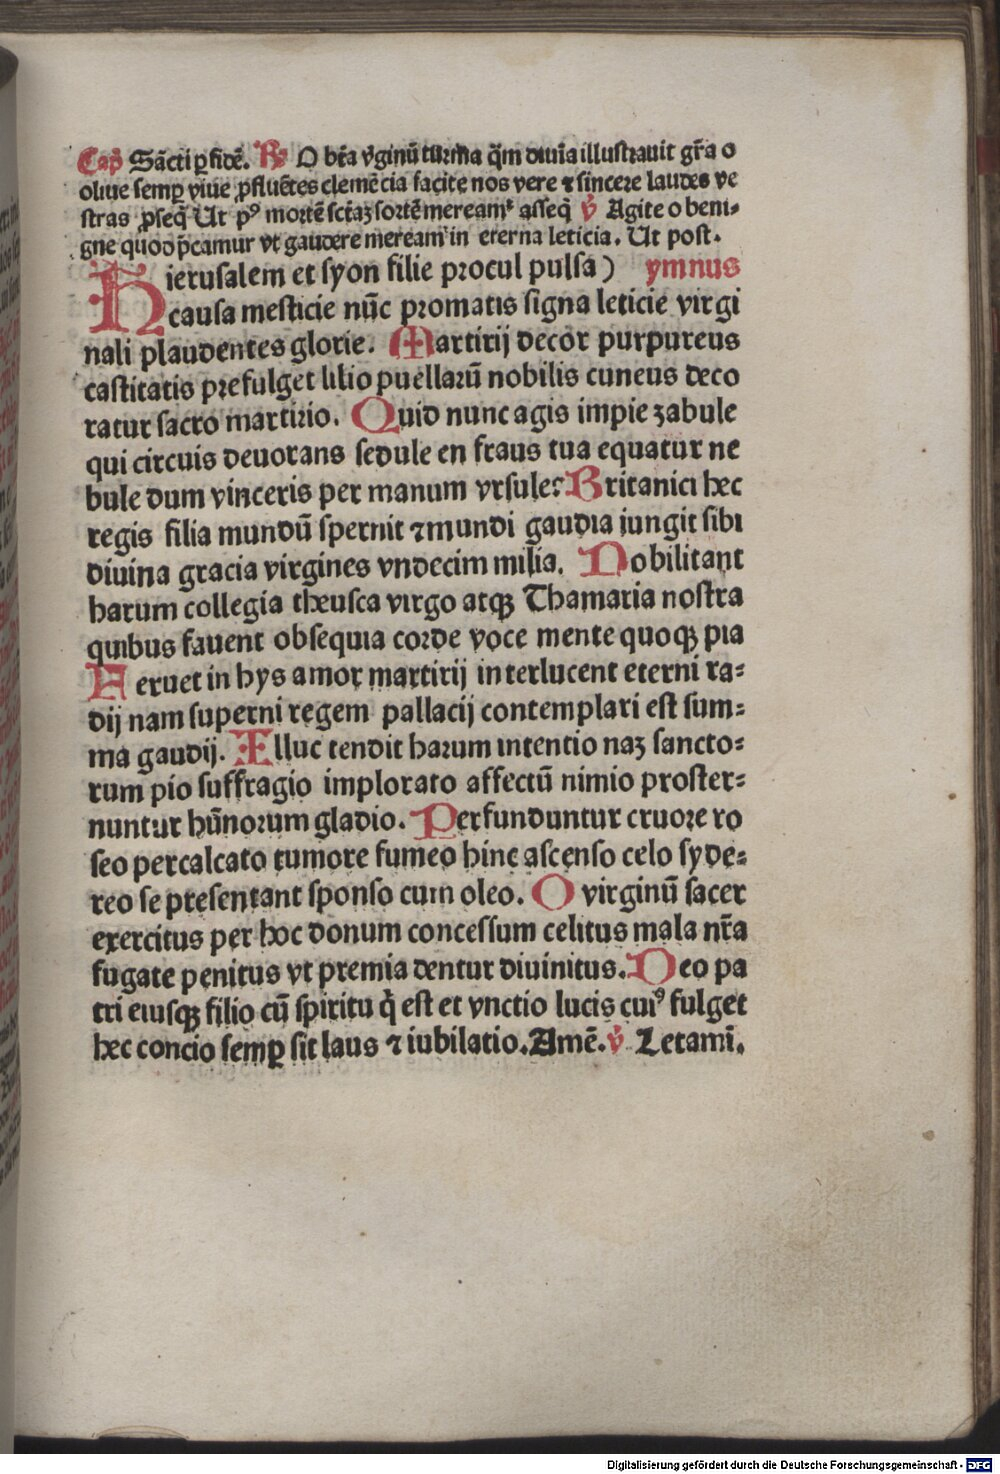 Cap̃ Sãcti ꝑ fidẽ. ℟ O bt̃a v̾ginũ turma q̃m diuĩa illustrauit gr̃a o
oliue semꝑ viue ꝓfluẽtes clemẽcia facite nos vere ⁊ sincere laudes ve
stras ꝓseq̃ Ut pꝰ mortẽ sct̃aꝝ sortẽ mereamᷣ asseq̃ ℣ Agite o beni⸗
gne quod p̃camur vt gaudere mereamᷣ in eterna leticia. Ut post.
Hierusalem et syon filie procul pulsa) ymnus
causa mesticie nũc promatis signa leticie virgi
nali plaudentes glorie. Martirij decor purpureus
castitatis prefulget lilio puellarũ nobilis cuneus deco
ratur sacro martirio. Quid nunc agis impie zabule
qui circuis deuorans sedule en fraus tua equatur ne
bule dum vinceris per manum vrsule? Britanici hec
regis filia mundũ spernit ⁊ mundi gaudia iungit sibi
diuina gracia virgines vndecim milia. Nobilitant
harum collegia theusca virgo atqꝫ Thamaria nostra
quibus fauent obsequia corde voce mente quoqꝫ pia
Feruet in hys amor martirij interlucent eterni ra⸗
dij nam superni regem pallacij contemplari est sum⸗
ma gaudij. Illuc tendit harum intentio naꝫ sancto⸗
rum pio suffragio implorato affectũ nimio proster⸗
nuntur hũnorum gladio. Perfunduntur cruore ro
seo percalcato tumore fumeo hinc ascenso celo syde⸗
reo se presentant sponso cum oleo. O virginũ sacer
exercitus per hoc donum concessum celitus mala nr̃a
fugate penitus vt premia dentur diuinitus. Deo pa
tri eiusqꝫ filio cũ spiritu q̇ est et vnctio lucis cuiꝰ fulget
hec concio semꝑ sit laus ⁊ iubilatio. Amẽ. ℣ Letamĩ.
Digitalisierung gefördert durch die Deutsche Forschungsgemeinschaft - DFG